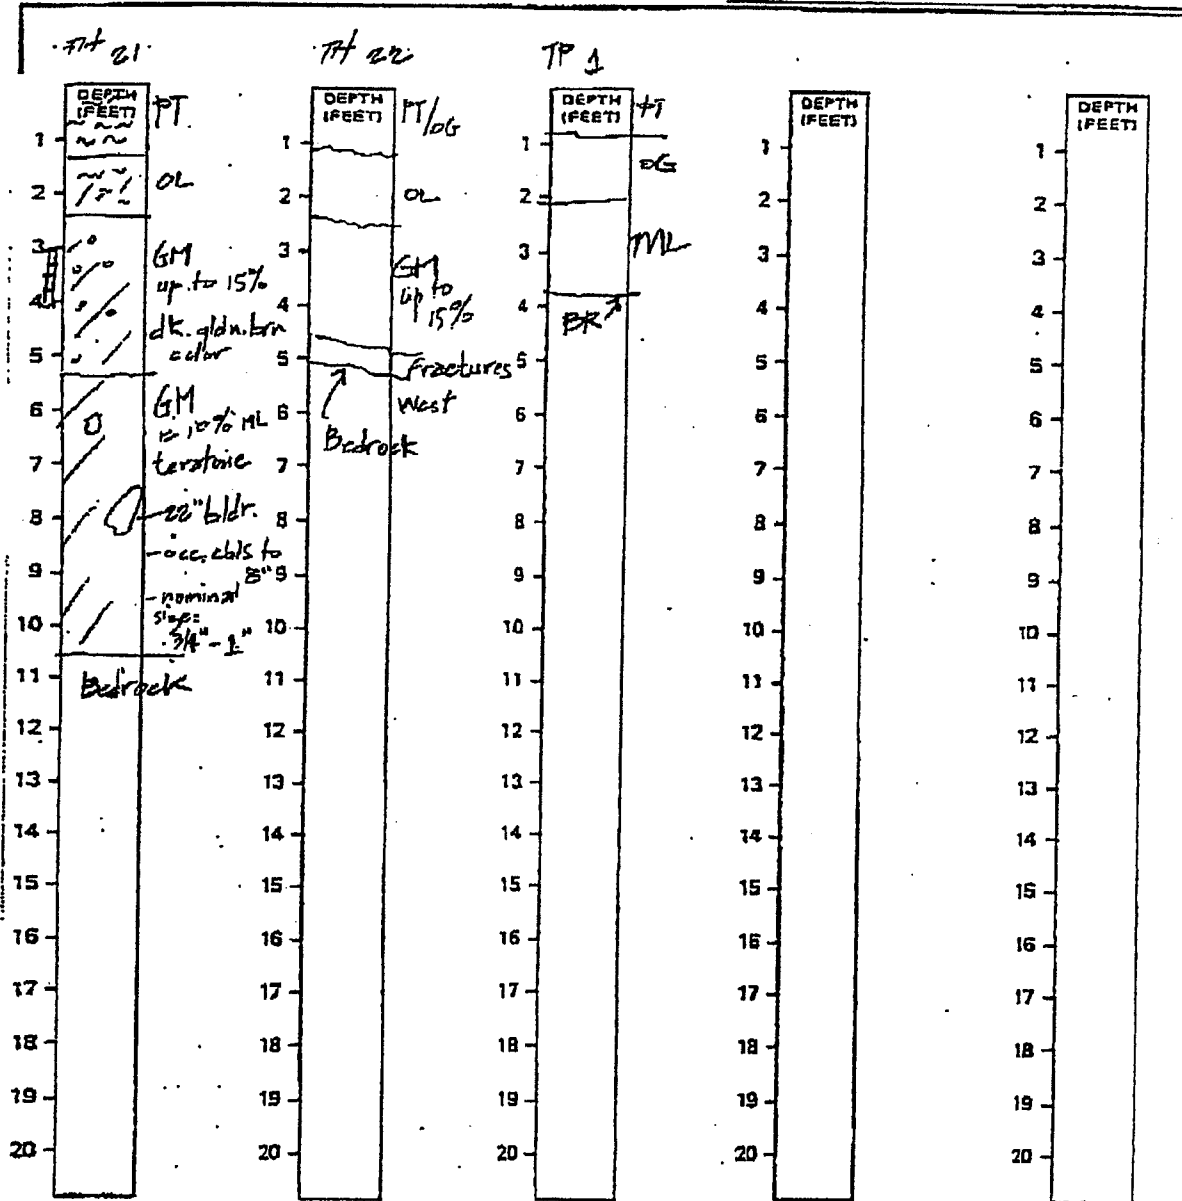 TH 21
TH 22
TP 1
DEPTH
(FEET)
PT
1
OL
2
3
GM
up to 15%
4
dk. gldn. brn
color
5
6
GM
10% ML
7
8
22" bldr.
occ. cbls to
8"
9
nominal
size=
10
3/4" - 1"
11
Bedrock
12
13
14
15
16
17
18
19
20
DEPTH
(FEET)
PT/OG
1
2
OL
3
GM
up to
15%
4
5
Fractures
West
6
Bedrock
7
8
9
10
11
12
13
14
15
16
17
18
19
20
DEPTH
(FEET)
PT
1
OG
2
3
ML
4
BR
5
6
7
8
9
10
11
12
13
14
15
16
17
18
19
20
DEPTH
(FEET)
1
2
3
4
5
6
7
8
9
10
11
12
13
14
15
16
17
18
19
20
DEPTH
(FEET)
1
2
3
4
5
6
7
8
9
10
11
12
13
14
15
16
17
18
19
20